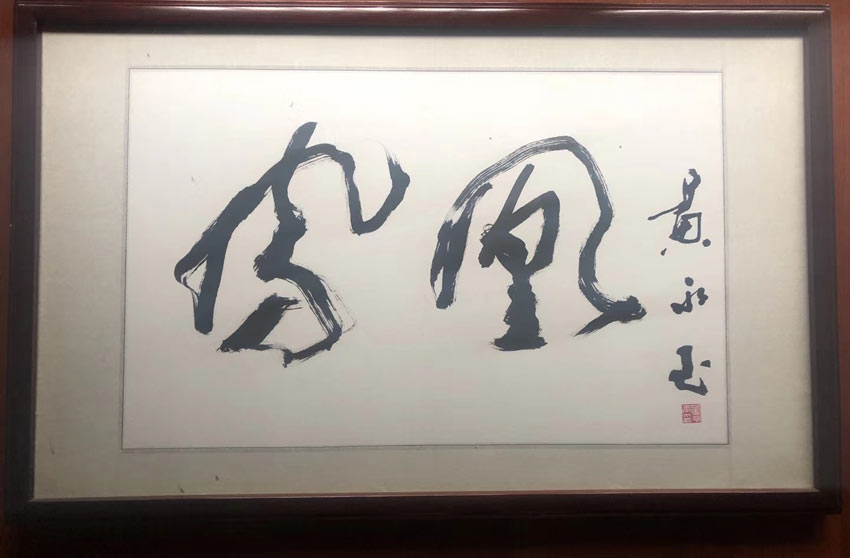 凤凰
黄永玉